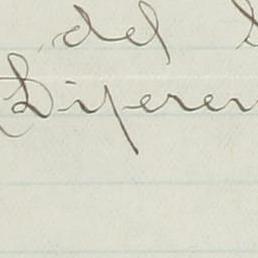 del
Diferen